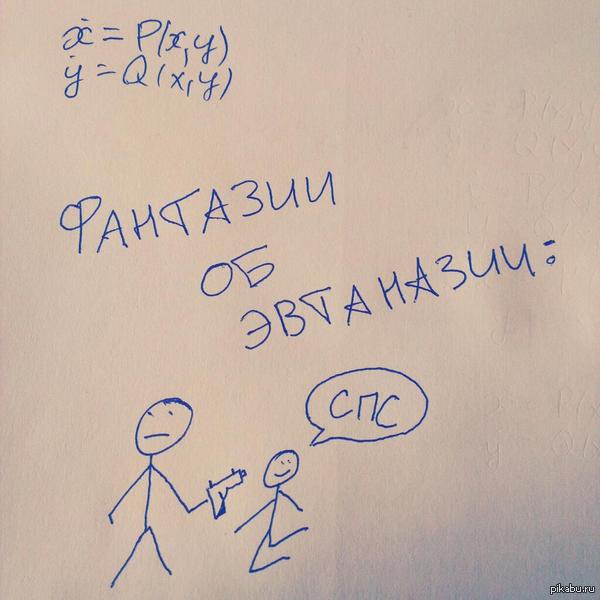 ẋ = P(x,y)
ẏ = Q(x,y)
ФАНТАЗИИ
ОБ
ЭВТАНАЗИИ:
СПС
pikabu.ru